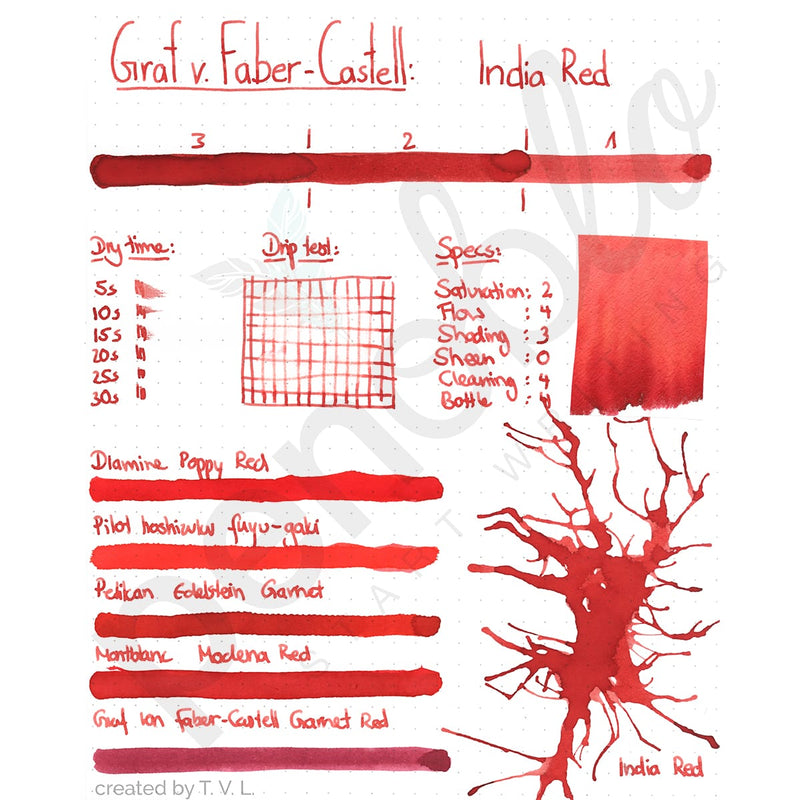 Graf v. Faber-Castell: India Red
3 2 1
Dry time:
5s
10s
15s
20s
25s
30s
Drip test:
Specs:
Saturation: 2
Flow : 4
Shading : 3
Sheen : 0
Cleaning : 4
Bottle : 4
Diamine Poppy Red
Pilot Iroshizuku fuyu-gaki
Pelikan Edelstein Garnet
Montblanc Modena Red
Graf von Faber-Castell Garnet Red
India Red
penoblo
created by T. V. L.